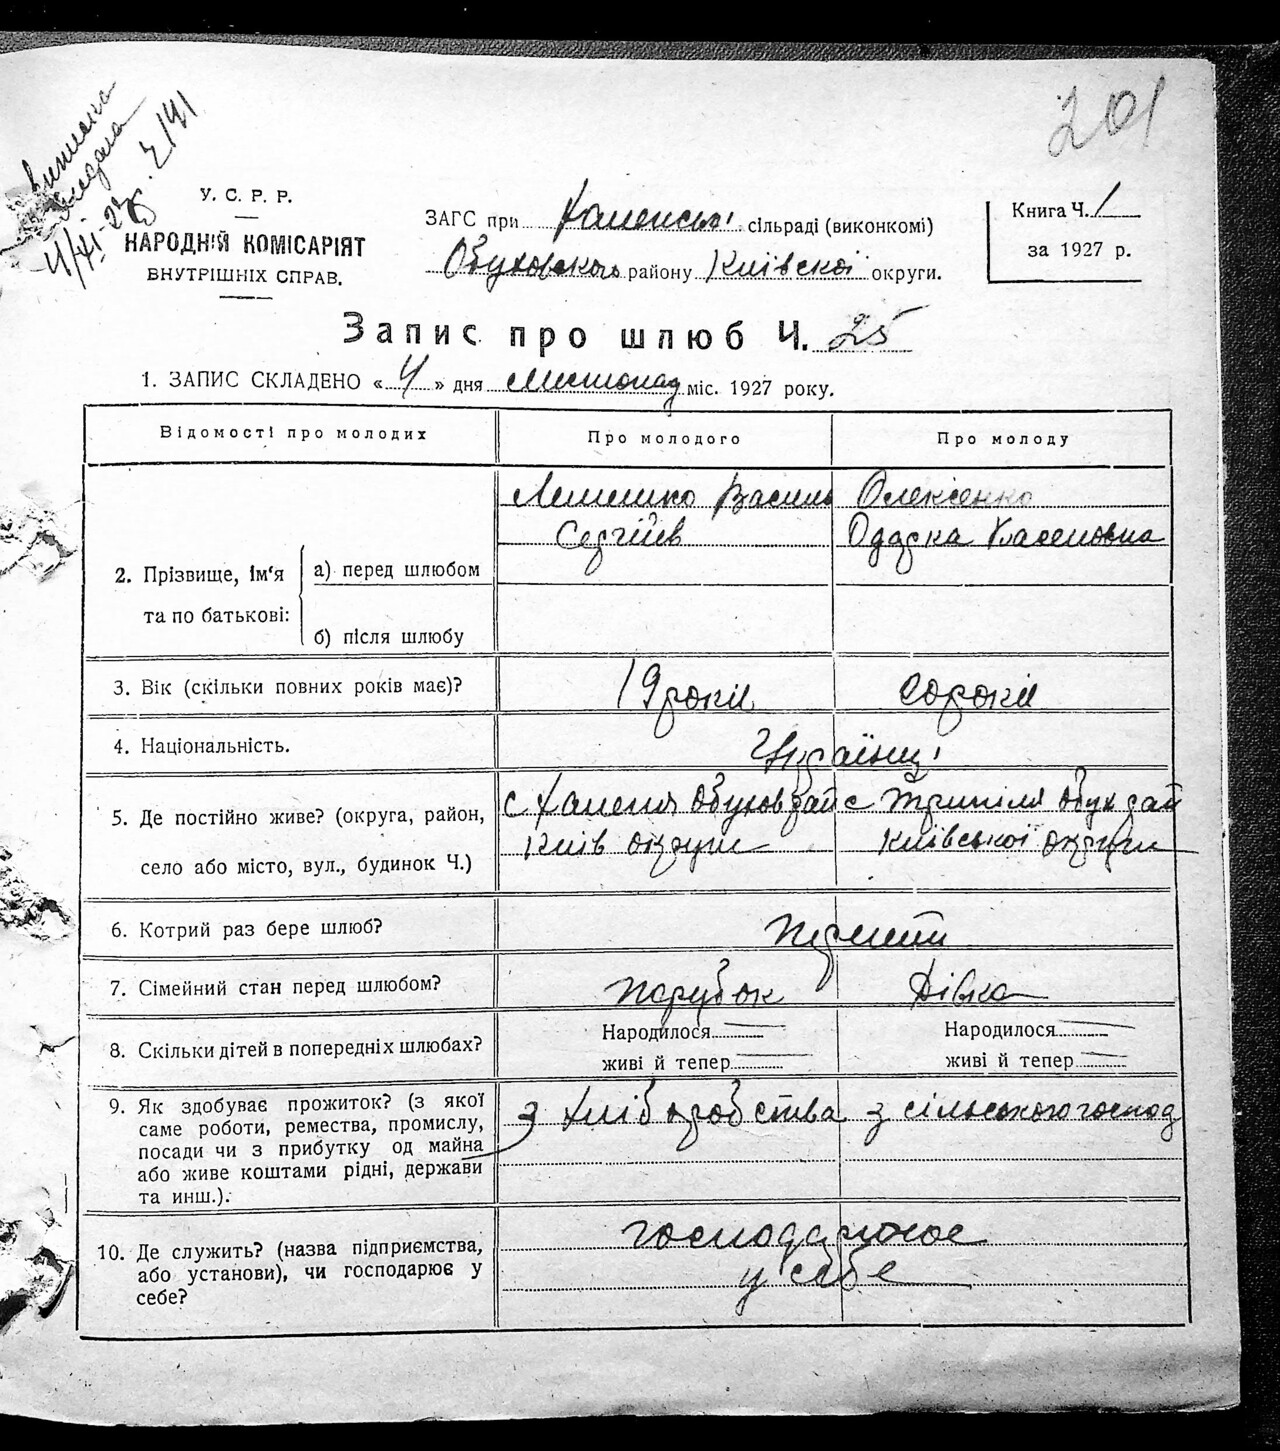 201
виписка
видана
4/XI-27р. 2191
У. С. Р. Р.
НАРОДНІЙ КОМІСАРІЯТ
ВНУТРІШНІХ СПРАВ.
ЗАГС при Халепські сільраді (виконкомі)
Обуховского району Київскої округи.
Книга Ч. 1
за 1927 р.
Запис про шлюб Ч. 25
1. ЗАПИС СКЛАДЕНО « 4 » дня Листопад міс. 1927 року.
Відомості про молодих
Про молодого
Про молоду
2. Прізвище, ім'я та по батькові:
а) перед шлюбом
Лемешко Василь
Сергіїв
Олексієнко
Одарка
б) після шлюбу
3. Вік (скільки повних років має)?
19 років
20 років
4. Національність.
Українці
5. Де постійно живе? (округа, район,
село або місто, вул., будинок Ч.)
с Халепя Обухов рай
Київ округи
с Трипілля Обух рай
Київської округи
6. Котрий раз бере шлюб?
Перший
7. Сімейний стан перед шлюбом?
Парубок
Дівка
8. Скільки дітей в попередніх шлюбах?
Народилося
живі й тепер
Народилося
живі й тепер
9. Як здобуває прожиток? (з якої
саме роботи, ремества, промислу,
посади чи з прибутку од майна
або живе коштами рідні, держави
та инш.).
з хліборобства
з сільського господ
10. Де служить? (назва підприємства,
або установи), чи господарює у
себе?
господарює
у себе